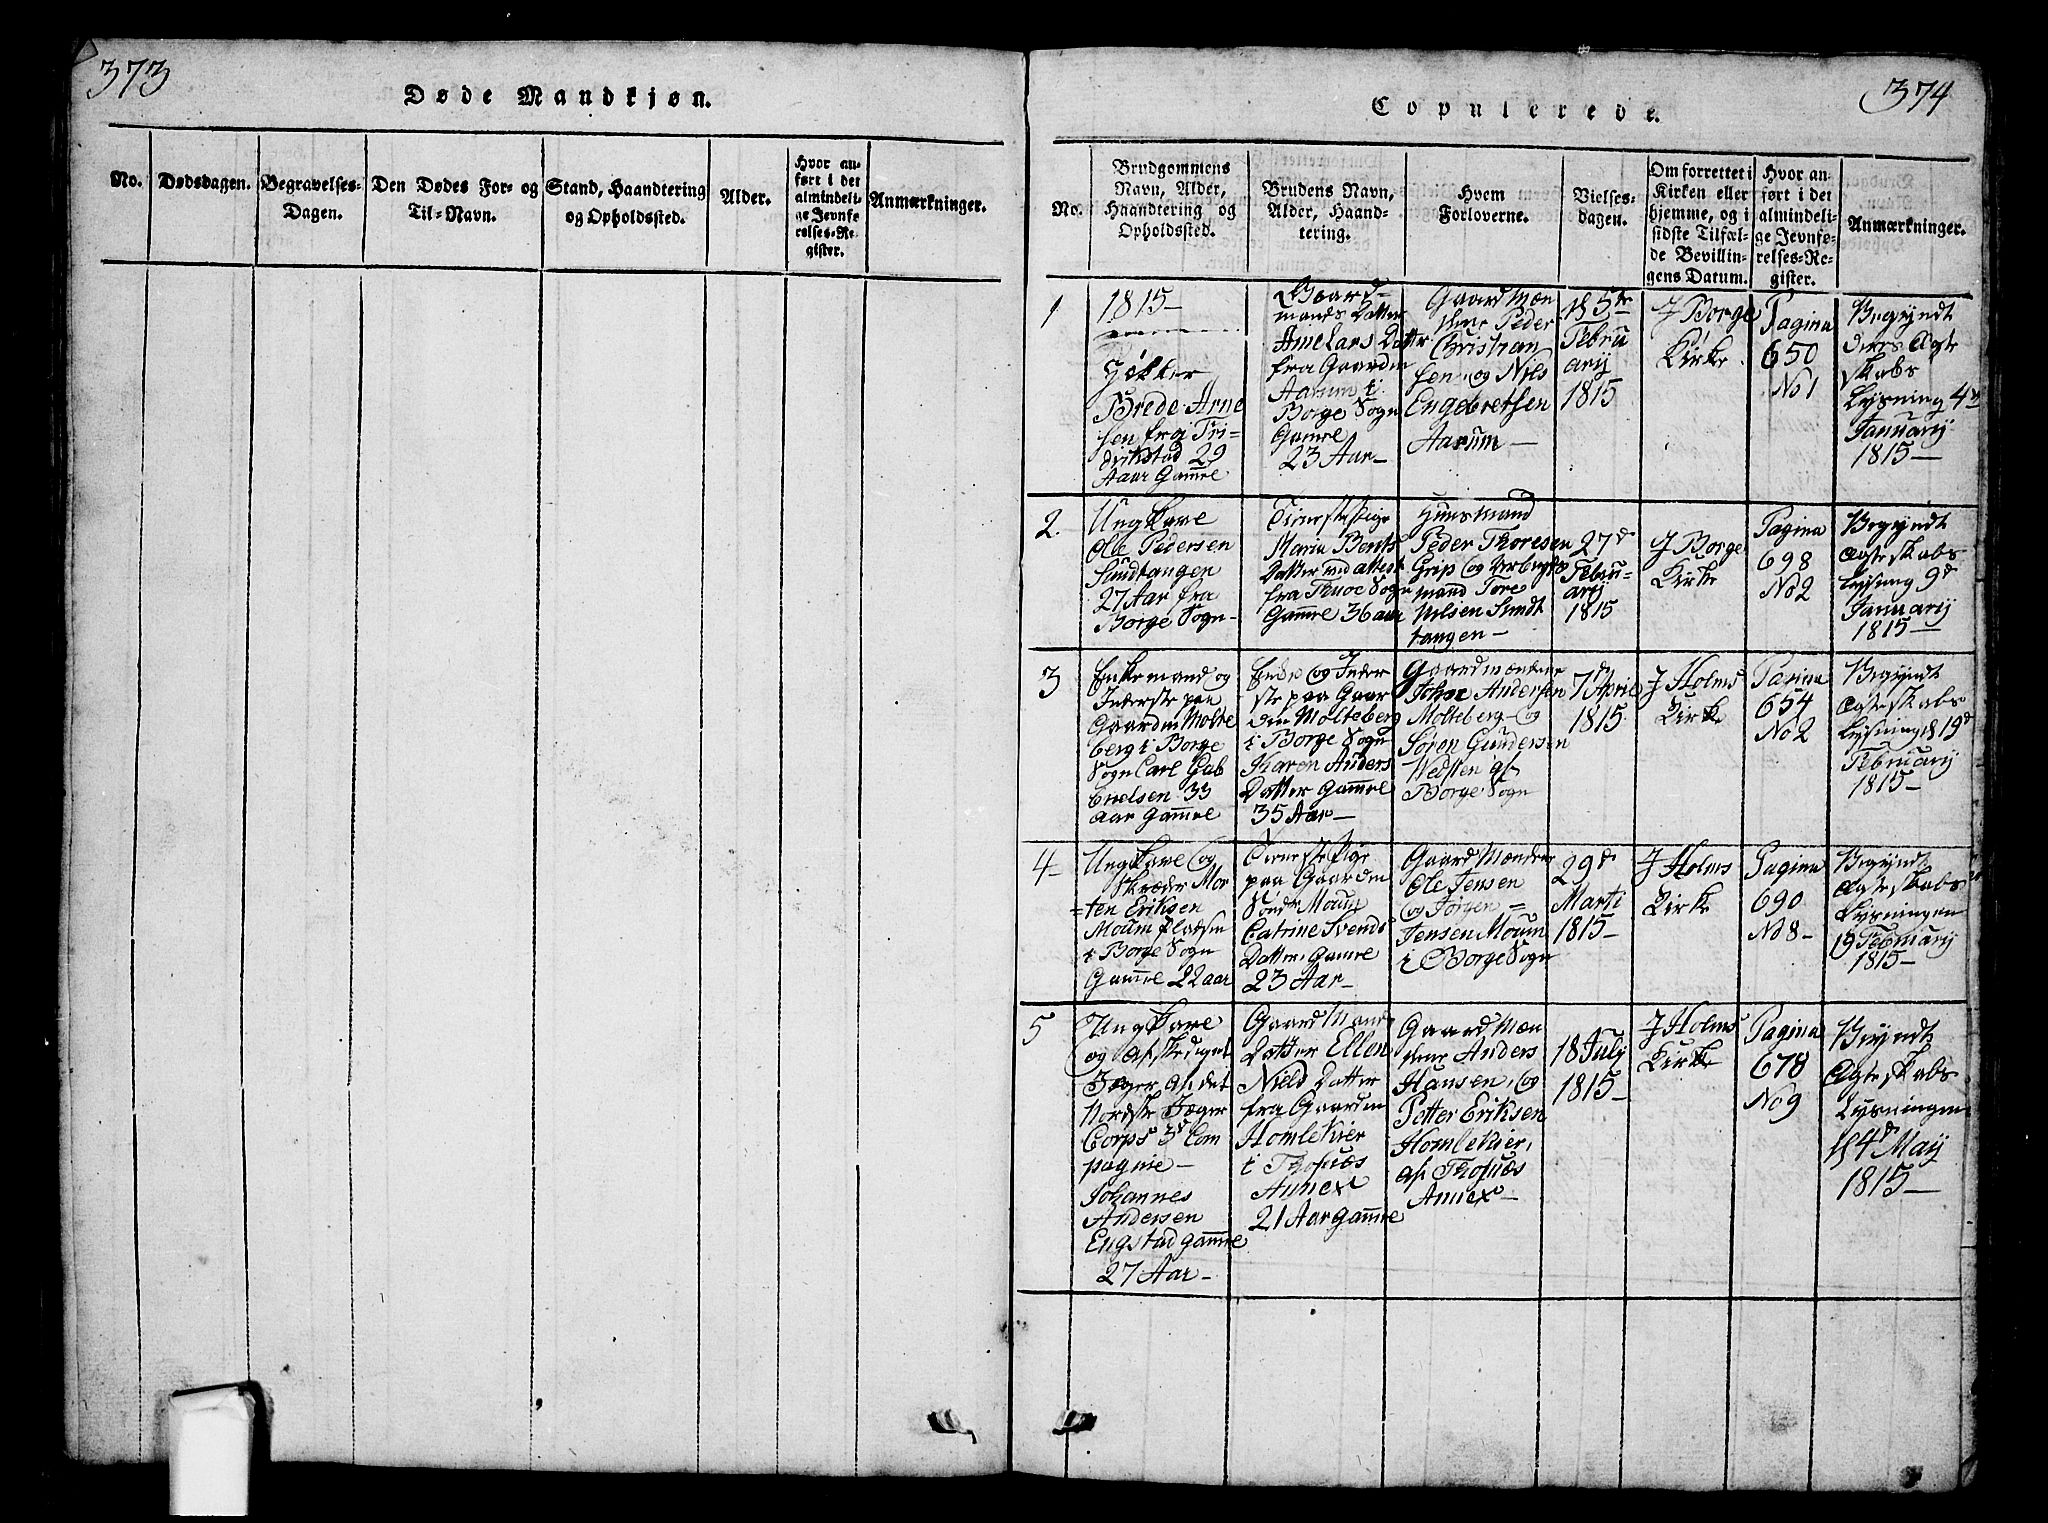 373
Døde Mandkjøn.
No.
Dødsdagen.
Begravelses-
Dagen.
Den Dødes For- og
Til-Navn.
Stand, Haandtering
og Opholdssted.
Alder.
Hvor an-
ført i det
almindeli-
ge Jevnfø
relses-Re
gister.
Anmærkninger.
374
Copulerede.
No.
Brudgommens
Navn, Alder,
Haandtering og
Opholdssted.
Brudens Navn,
Alder, Haand-
tering.
Hvem
Forloverne.
Vielses-
dagen.
Om forrettet i
Kirken eller
hjemme, og i
sidste Tilfæl-
de Bevillin-
gens Datum.
Hvor an-
ført i det
almindeli-
ge Jevnfø-
relses-Re-
gister.
Anmærkninger.
1
1815-
Høker
Brede Arne
sen fra Fri-
drikstad 29
Aaar Gamel
Gaard-
mands Datter
Ane Lars Datter
fra Gaarden
Aarum i
Borge Sogn
Gamel
23 Aar-
Gaard Mæn
dene Peder
Christian
sen og Niels
Engebretsen
Aarum-
Febru
arij
1815
J Borge
Kirke
Pagina
650
No 1
Begyndt
deres Ægte
skabs
Lysning 4de
Januarij
1815-
2.
Ung Karl
Ole Pedersen
Sundtangen
27 Aar fra
Borge Sogn-
Tieneste Pige
Maria Bents
Datter med attest
fra Thuøe Sogn
Gamel 36 aar
Huusmand
Peder Thoresen
Grip og
mand Tore
Nilsen Sundt
tangen-
27d
Febru-
arij
1815
J Borge
Kirke
Pagina
698
No 2
Begyndt
Ægteskabs
Lysning 9d
Januarij
1815-
3
Enkemand og
Inderste paa
Gaarden Molte
berg i Borge
Sogn Carl Gab
rielsen 33
aar Gamel
Enke og Inder
ste paa Gaar
den Molteberg
i Borge Sogn
Karen Anders
Datter Gamel
35 Aar-
Gaardmændene
Johan Andersen
Molteberg og
Søren Gundersen
Wedsten af
Borge Sogn
7d April
1815
J Holms
Kirke
Pagina
654
No 2
Begyndt
Ægteskabs
Lysning d 19d
Februarij
1815-
4-
Ung Karl og
Skræder Mor
=ten Eriksen
Moum Platsen
i Borge Sogn
Gamel 22 aar
Tieneste Pige
paa Gaarden
Søndre Moum
Catrine Svends
Datter Gamel
23 Aar-
Gaard Mændene
Ole Jensen
og Jørgen =
Jensen Moum
i Borge Sogn
29d
Marti
1815-
J Holms
Kirke
Pagina
690
No 8-
Begyndt
Ægteskabs
Lysningen
19 Februarij
1815-
5
Ung Karl
og Afskediget
Jæger af det
Norske Jæger
Corps 3d Com
pagnie-
Johannes
Andersen
Engstad gamel
27 Aar-
Gaard Mands
Datter Ellen
Niels Datter
fra Gaarden
Homlekier
i Thosnæs
Annex
21 Aar Gamel
Gaard Mæn
dene Anders
Hansen og
Petter Eriksen
Homlekier,
af Thosnæs
Annex-
18 July
1815-
J Holms
Kirke
Pagina
678
No 9
Begyndt
Ægteskabs
Lysningen
d 4d May
1815-